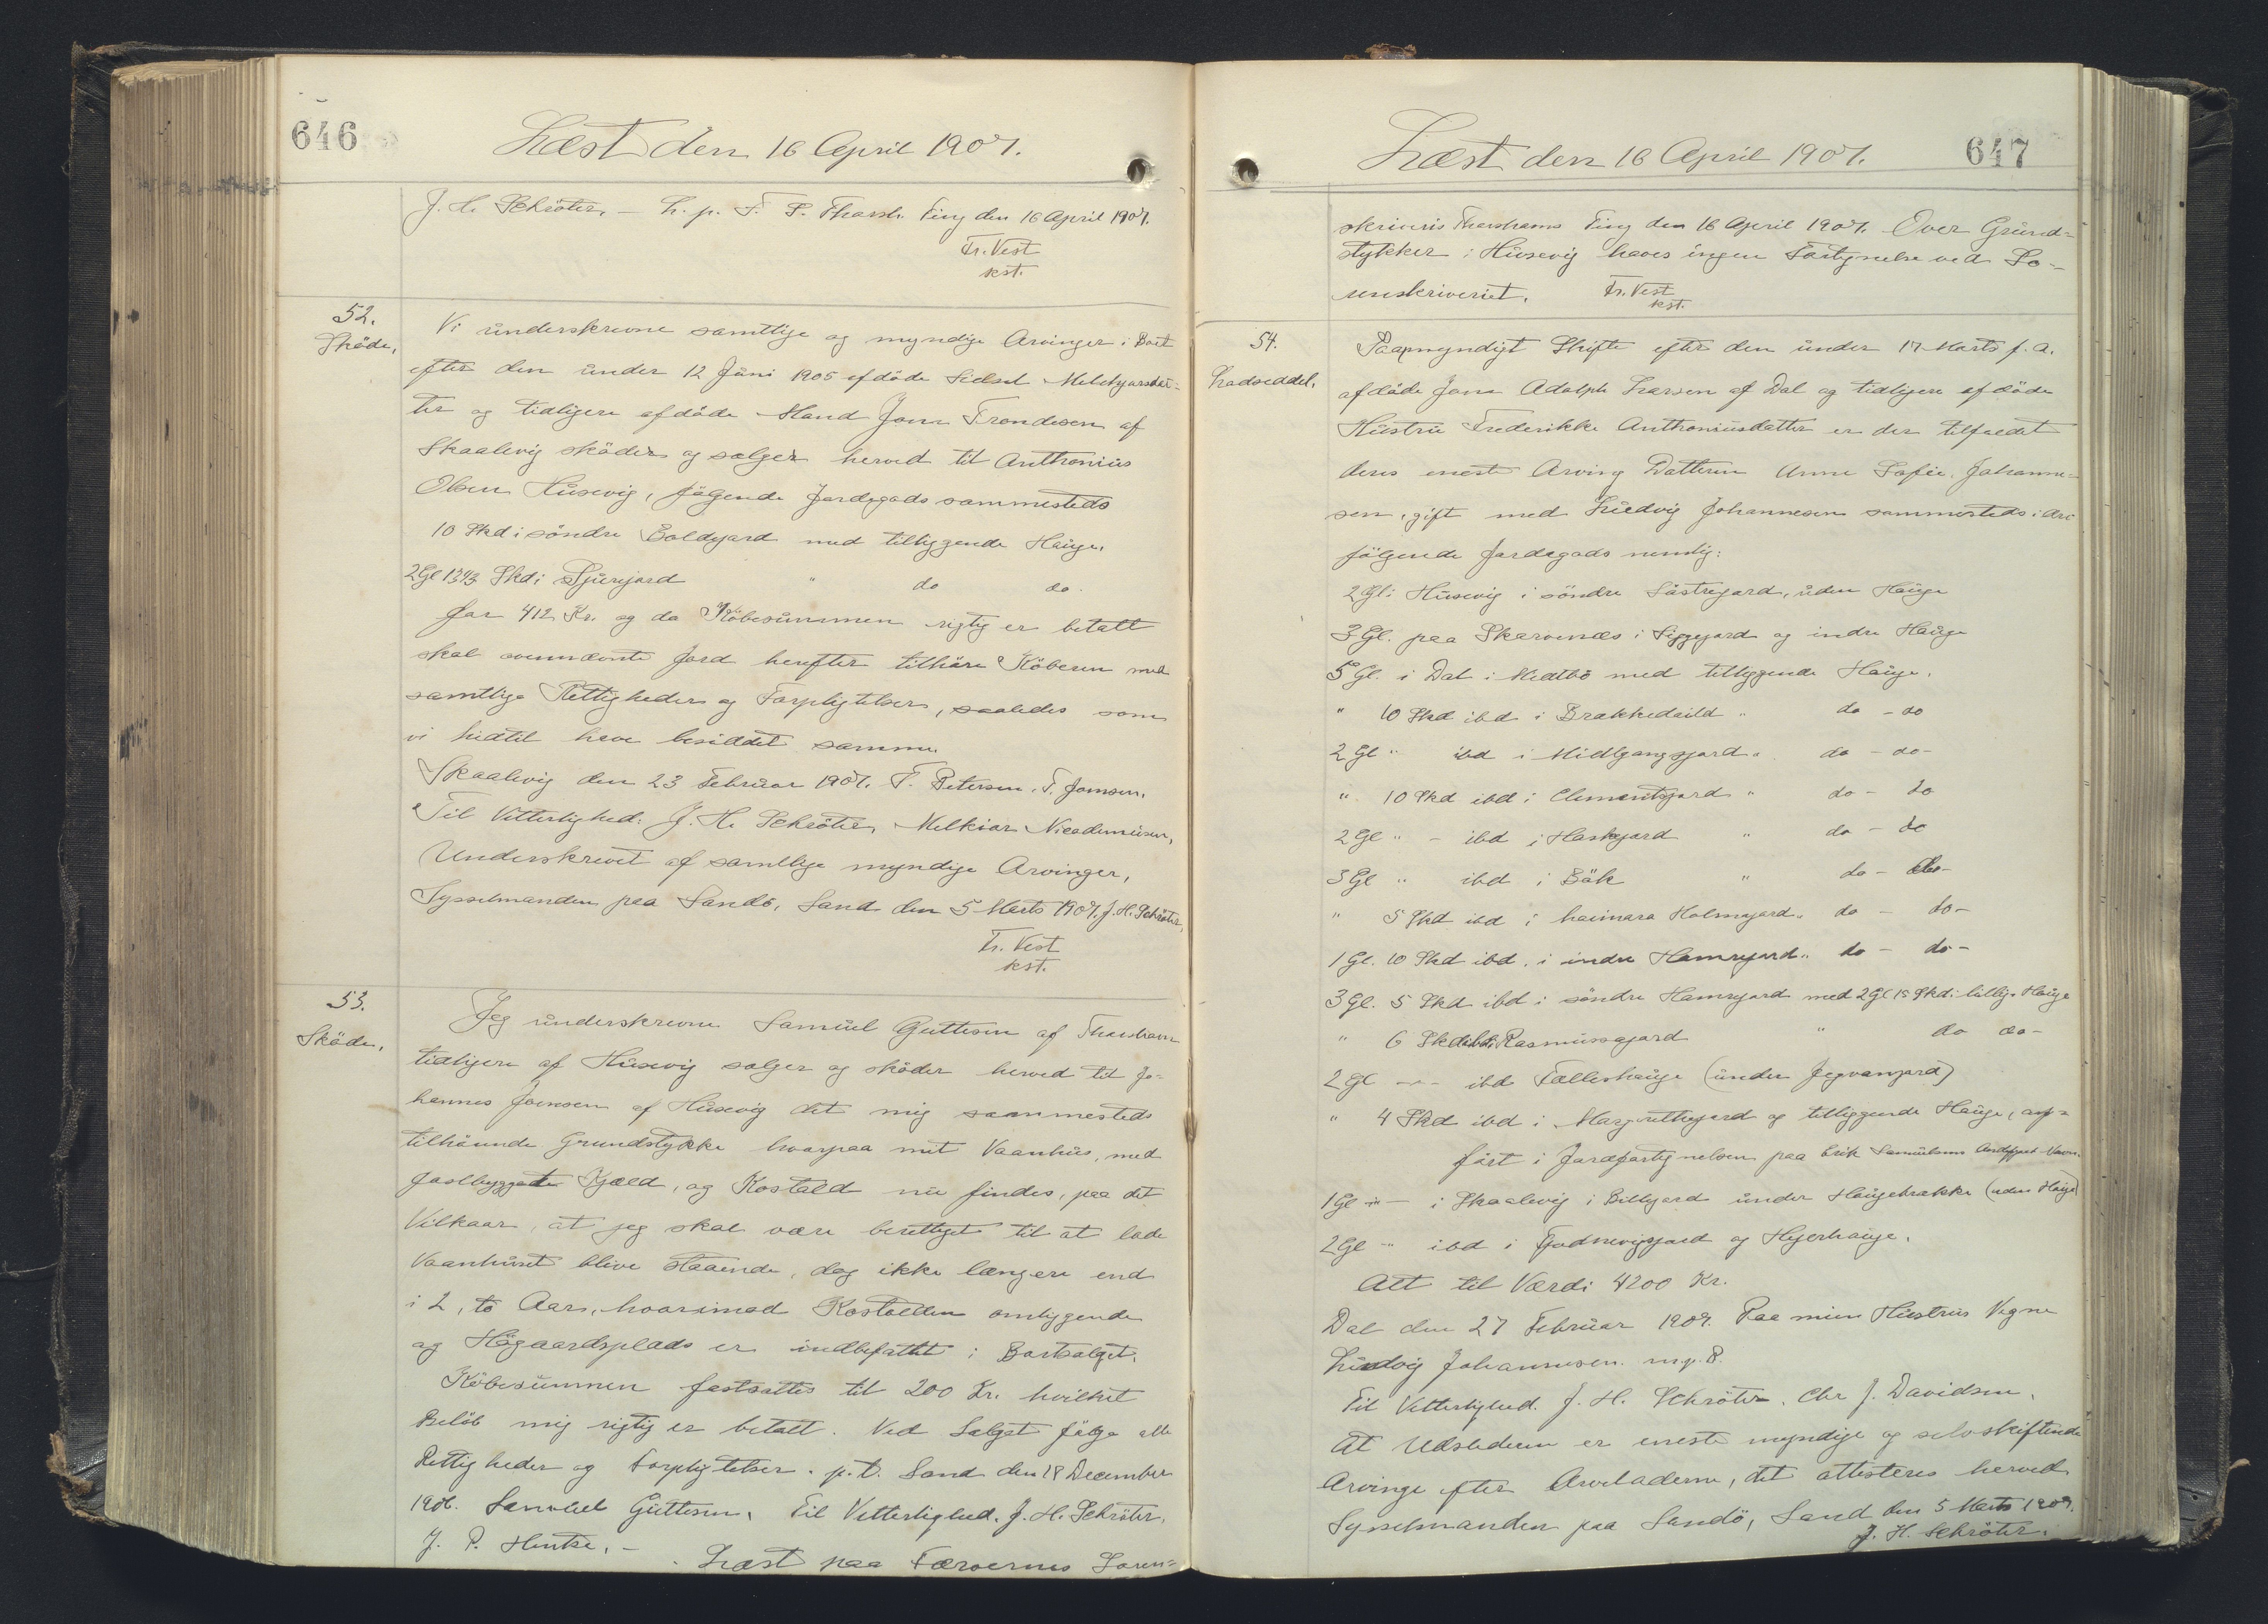 646
Læst den 16 April 1907.
J. H. Schröter. – L. p. F. S. Thorsh. Ting den 16 April 1907.
Fr. Vest
kst.
52.
Sköde,
Vi underskrevne samtlige og myndige Arvinger i Boet
efter den under 12 Juni 1905 afdöde Sidsel Melchjorsdat-
ter og tidligere afdöde Mand Joen Trondesen af
Skaalevig sköder og sælger herved til Anthonius
Olsen Husevig, fölgende Jordegods sammesteds
10 Skd i söndre Boldgard med tilliggende Hauge.
2 Gl 13 Skd i Spurigard " do do.
for 412 Kr. og da Köbesummen rigtig er betalt
skal ovennævnte Jord herefter tilhöre Köberen med
samtlige Rettigheder og Forpligtelser, saaledes som
vi hidtil have besiddet samme.
Skaalevig den 23 Februar 1907. T. Petersen. T. Joensen.
Til Vitterlighed: J. H. Schröter, Melkior Nicodemusen,
Underskrevet af samtlige myndige Arvinger,
Sysselmanden paa Sandö, Sand den 5 Marts 1907. J. H. Schröter,
Fr. Vest
kst.
53.
Sköde,
Jeg underskrevne Samuel Guttesen af Thorshavn
tidligere af Husevig sælger og sköder herved til Jo-
hannes Joensen af Husevig det mig sammesteds
tilhörende Grundstykke hvorpaa mit Vaanhus, med
fastbyggede Kjæld, og Kostald nu findes, paa det
Vilkaar, at jeg skal være berettiget til at lade
Vaanhuset blive staaende, dog ikke længere end
i 2, to Aar, hvorimod Kostalden omliggende
og Högaardsplads er indbefattet i Bortsalget.
Köbesummen fastsattes til 200 Kr. hvilket
Belöb mig rigtig er betalt. Ved Salget fölge alle
Rettigheder og Forpligtelser. p.t. Sand den 18 December
1906. Samuel Guttesen. Til Vitterlighed. J. H. Schröter.
J. P. Hentze. –
Læst paa Færoernes Soren-
Læst den 16 April 1907.
647
skriveris Thorshavns Ting den 16 April 1907. Over Grund-
stykker i Husevig haves ingen Fortegnelse ved So-
renskriveriet. Fr. Vest
kst.
54.
Lodseddel.
Paa myndigt Skifte efter den under 17 Marts f. A.
afdöde Jons Adolph Larsen af Dal og tidligere afdöde
Hustru Frederikke Anthoniusdatter er der tilfaldet
deres eneste Arving Datteren Unne Sofie Johanne-
sen, gift med Ludvig Johannesen sammesteds i Arv
fölgende Jordegods nemlig:
2 Gl i Husevig i söndre Sástregard, uden Hauge
3 Gl. paa Skarvenæs i Siggegard og indre Hauge
5 Gl. i Dal i Midtbö med tilliggende Hauge.
" 10 Skd ibd i Brækkedeild " do – do
2 Gl " ibd i Midlgangsgard " do – do–
" 10 Skd ibd i Clementsgard " do – do
2 Gl " – ibd i Haskgard " do – do
3 Gl " ibd i Bök " do – do–
" 5 Skd ibd i heimara Holmgard " do – do–
1 Gl. 10 Skd ibd. i indre Hamregard " do – do–
3 Gl. 5 Skd ibd i söndre Hamregard med 2 Gl 15 Skd i tillig. Hauge
" 6 Skd ibd i Rasmussagard " do do–
2 Gl –"– ibd Fælleshauge (under Jegvangard)
" 4 Skd ibd i Margrethegard og tilliggende Hauge, an-
fört i Jordfortegnelsen paa Erik Samuelsens Navn.
1 Gl – i Skaalevig i Billegard under Haugebrække (uden Hauge)
2 Gl " ibd i Godnevigsgard og Hejerhauge.
Alt til Værdi 4200 Kr.
Dal den 27 Februar 1907. Paa min Hustrus Vegne
Ludvig Johannesen. m.p.P.
Til Vitterlighed. J. H. Schröter. Chr J. Davidsen.
At Udstederen er eneste myndige og selvskiftende
Arvinge efter Arveladerne, det attesteres herved
Sysselmanden paa Sandö, Sand den 5 Marts 1907.
J. H. Schröter.